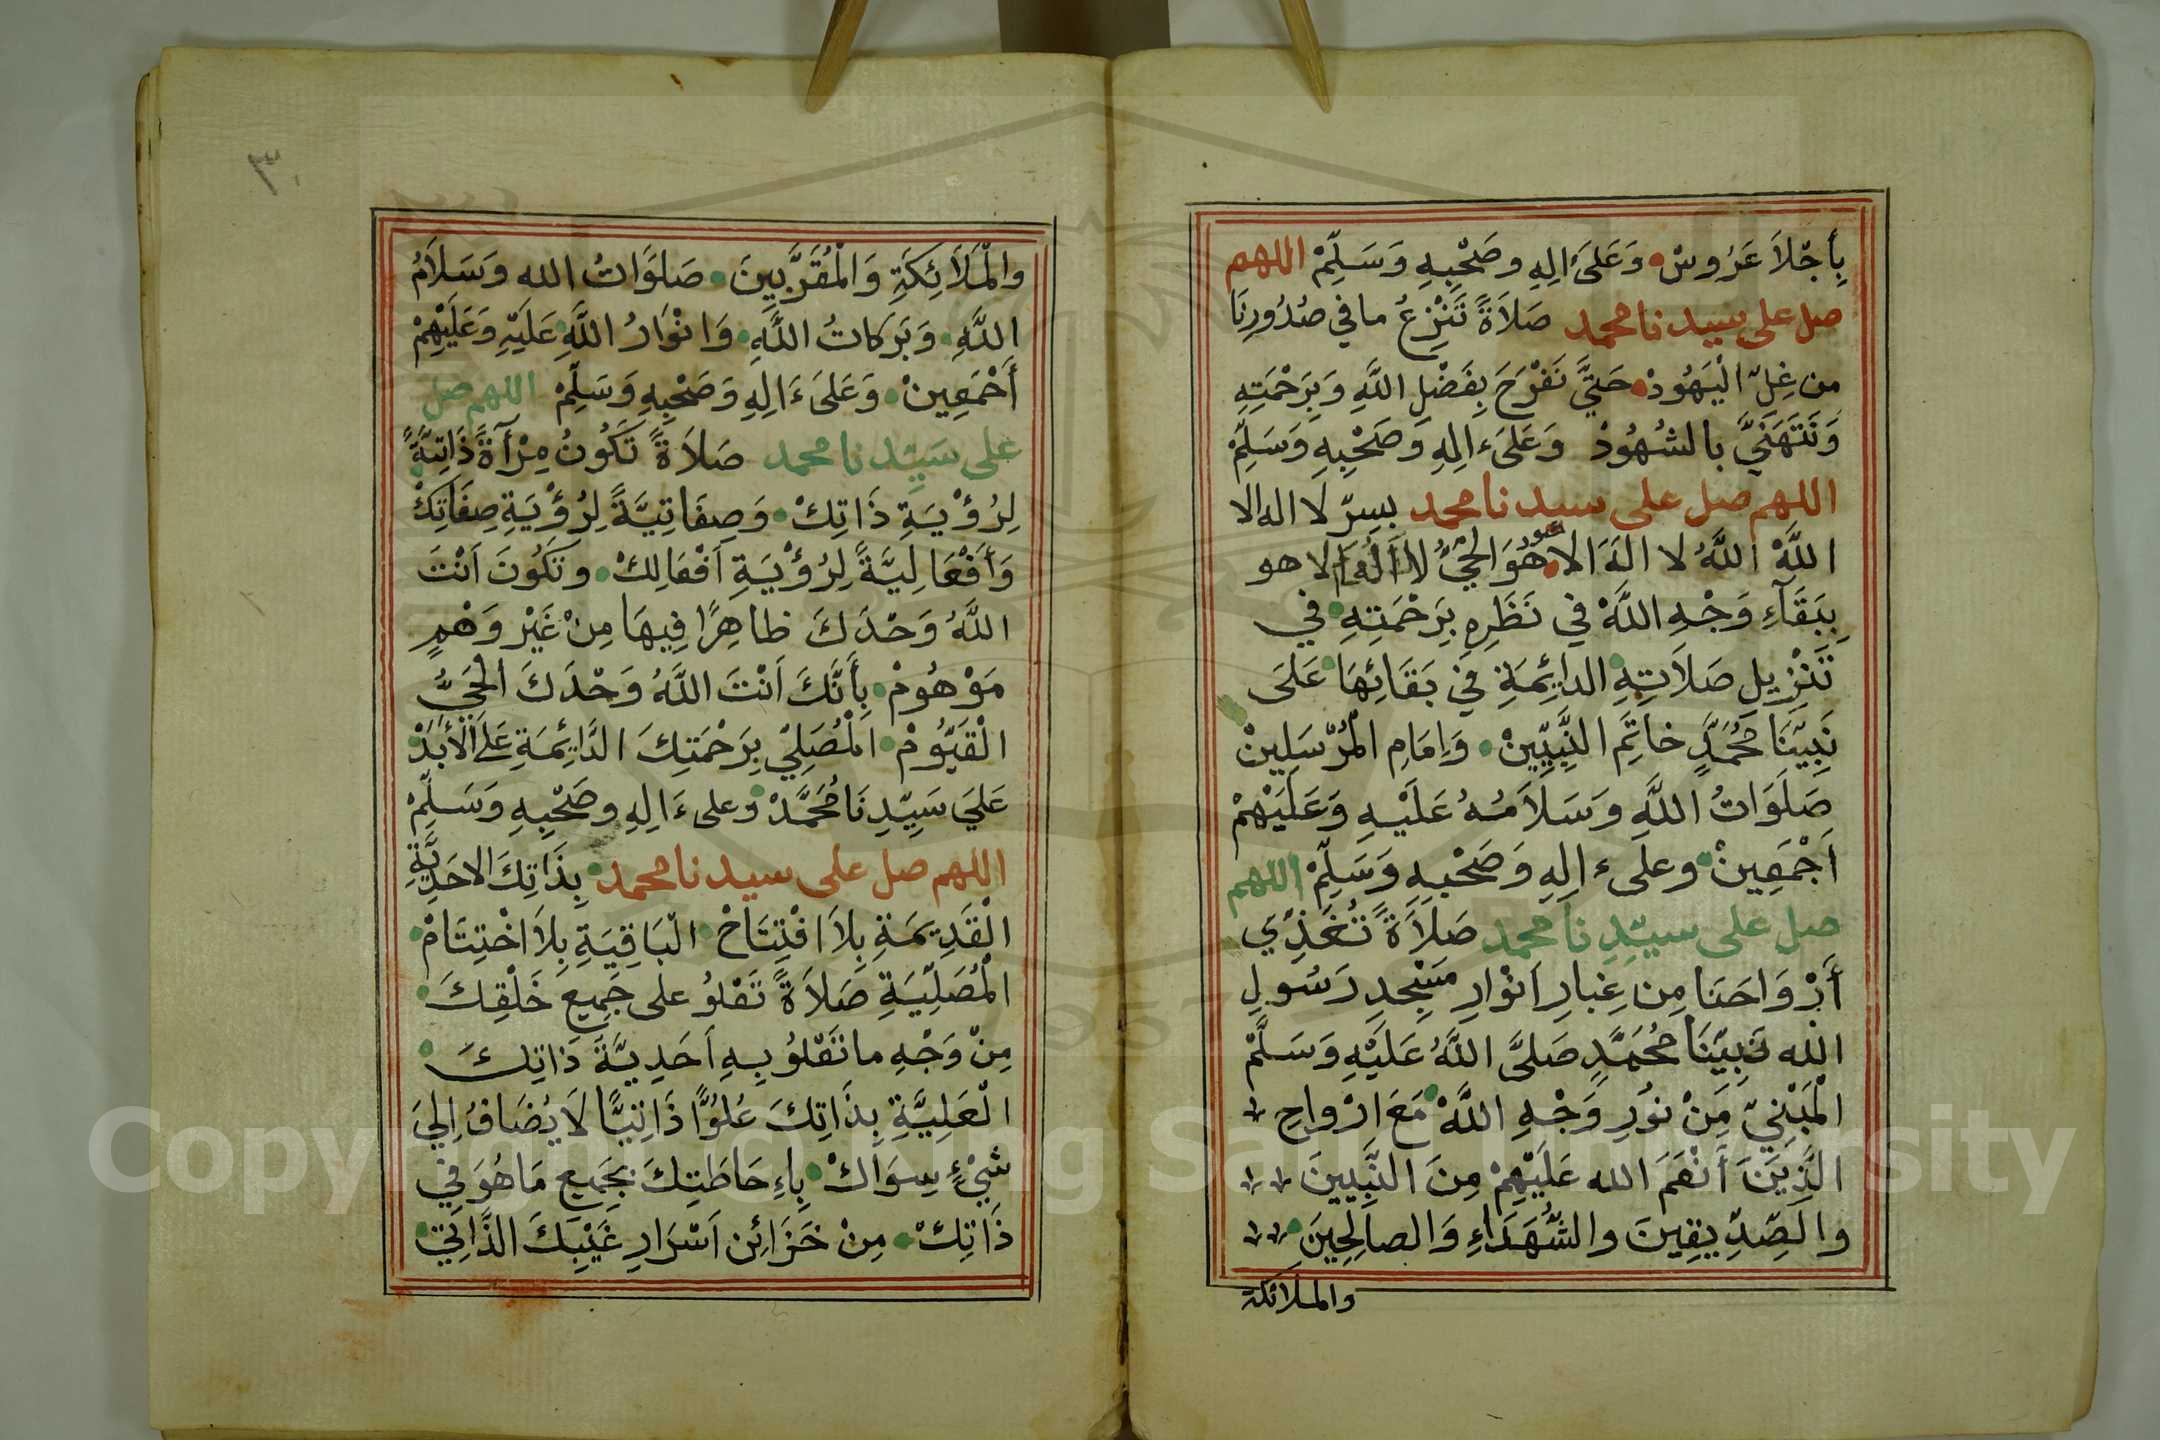 بِأَجْلَا عَرُوسْ وَعَلَىءَالِهِ وصَحْبِهِ وَسَلِّمْ اللهم
صل على سيدنا محمد صَلاَةً تَنْزِعُ ما في صُدُورِنَا
من غِلّ الْيَهُودْ حَتَّى نَفْرَحَ بِفَضْلِ اللَّهِ وَبِرَحْمَتِهِ
وَنَتَهَنَّى بالشُهُودْ وَعَلَىءَالِهِ وصَحْبِهِ وَسَلِّمْ
اللهم صل على سيدنا محمد بسِرّ لا اله الا
اللَّهْ اللَّهُ لا الَهَ الا هُوَ الحَيُّ لا اله الا هو
بِبَقَآءِ وَجْهِ اللَّهْ في نَظَرِهِ بِرَحْمَتِهِ في
تَنْزِيلِ صَلاَتِهِ الدائِمَةِ في بَقَائِهَا عَلَى
نَبِيّنَا مُحَمَّدٍ خاتَمِ النَّبِيِّينْ وَاِمَامِ الْمُرْسَلِينْ
صَلَوَاتُ اللَّهِ وسَلاَمُهُ عَلَيْهِ وَعَلَيْهِمْ
اَجْمَعِينْ وعلىءَالِهِ وَصَحْبِهِ وَسَلِّمْ اللهم
صل على سيِّدِنا محمد صَلاَةً تُغَذِّي
أَرْوَاحَنَا مِن غِبارِ اَنْوَارِ مَسْجِدِ رَسُولِ
الله نَبِيّنَا مُحَمَّدٍ صَلَّى اللَّهُ عَلَيْهِ وَسَلَّمْ
الْمَبْنِيّ مِنْ نُورِ وَجْهِ اللَّهْ مَعَ ارْواحِ
الَّذِينَ أَنْعَمَ الله عَلَيْهِمْ مِنَ النَّبِيينَ
والصِّدِّيقِينَ والشُّهَدَاءِ وَالصالِحِينَ
والملائكة
٣٠
والْمَلَائِكَةِ وَالْمُقَرَّبِينَ صَلَوَاتُ الله وَسَلاَمُ
اللَّهِ وَبَرَكاتُ اللَّهِ وَانْوَارُ اللَّهِ عَلَيْهِ وَعَلَيْهِمْ
أَجْمَعِينْ وَعَلَىءَالِهِ وَصَحْبِهِ وَسَلِّمْ اللهم صل
على سَيِّدِنا محمد صَلاَةً تَكُونُ مِرْآةً ذَاتِيَّةً
لِرُؤْيَةِ ذَاتِكْ وَصِفَاتِيَّةً لِرُؤْيَةِ صِفَاتِكْ
وَأَفْعَالِيَّةً لِرُؤْيَةِ اَفْعَالِكْ وتَكُونَ اَنْتَ
اللَّهُ وَحْدَكَ ظاهِرًا فِيهَا مِنْ غَيْرِ وَهْمٍ
مَوْهُومْ بِأَنَّكَ اَنْتَ اللَّهُ وَحْدَكَ الْحَيُّ
الْقَيُّومْ الْمُصَلِّيْ بِرَحْمَتِكَ الدَّائِمَةِ عَلَى الْأَبَدْ
عَلَيَ سَيِّدِنَا مُحَمَّدْ وعلىءَالِهِ وصَحْبِهِ وَسَلِّمْ
اللهم صل على سيدنا محمد بِذَاتِكَ الاحَدِيَّةِ
الْقَدِيمَةِ بِلَا افْتِتَاحْ الْبَاقِيَةِ بِلَا اخْتِتَامْ
الْمُصَلِّيَةِ صَلاَةً تَعْلُو على جَمِيعِ خَلْقِكَ
مِنْ وَجْهِ ما تَعْلُو بِهِ اَحَدِيَّةَ ذَاتِكَ
الْعَلِيَّةِ بِذَاتِكَ عُلُوًّا ذَاتِيًّا لَا يُضَافُ اِلَيَ
شَيْءٍ سِوَاكْ بِاِحَاطَتِكَ بِجَمِيعِ مَا هُوَ في
ذَاتِكْ مِنْ خَزَائِن اَسْرَارِ غَيْبِكَ الذَّاتِيّ
Copyright © King Saud University
1957